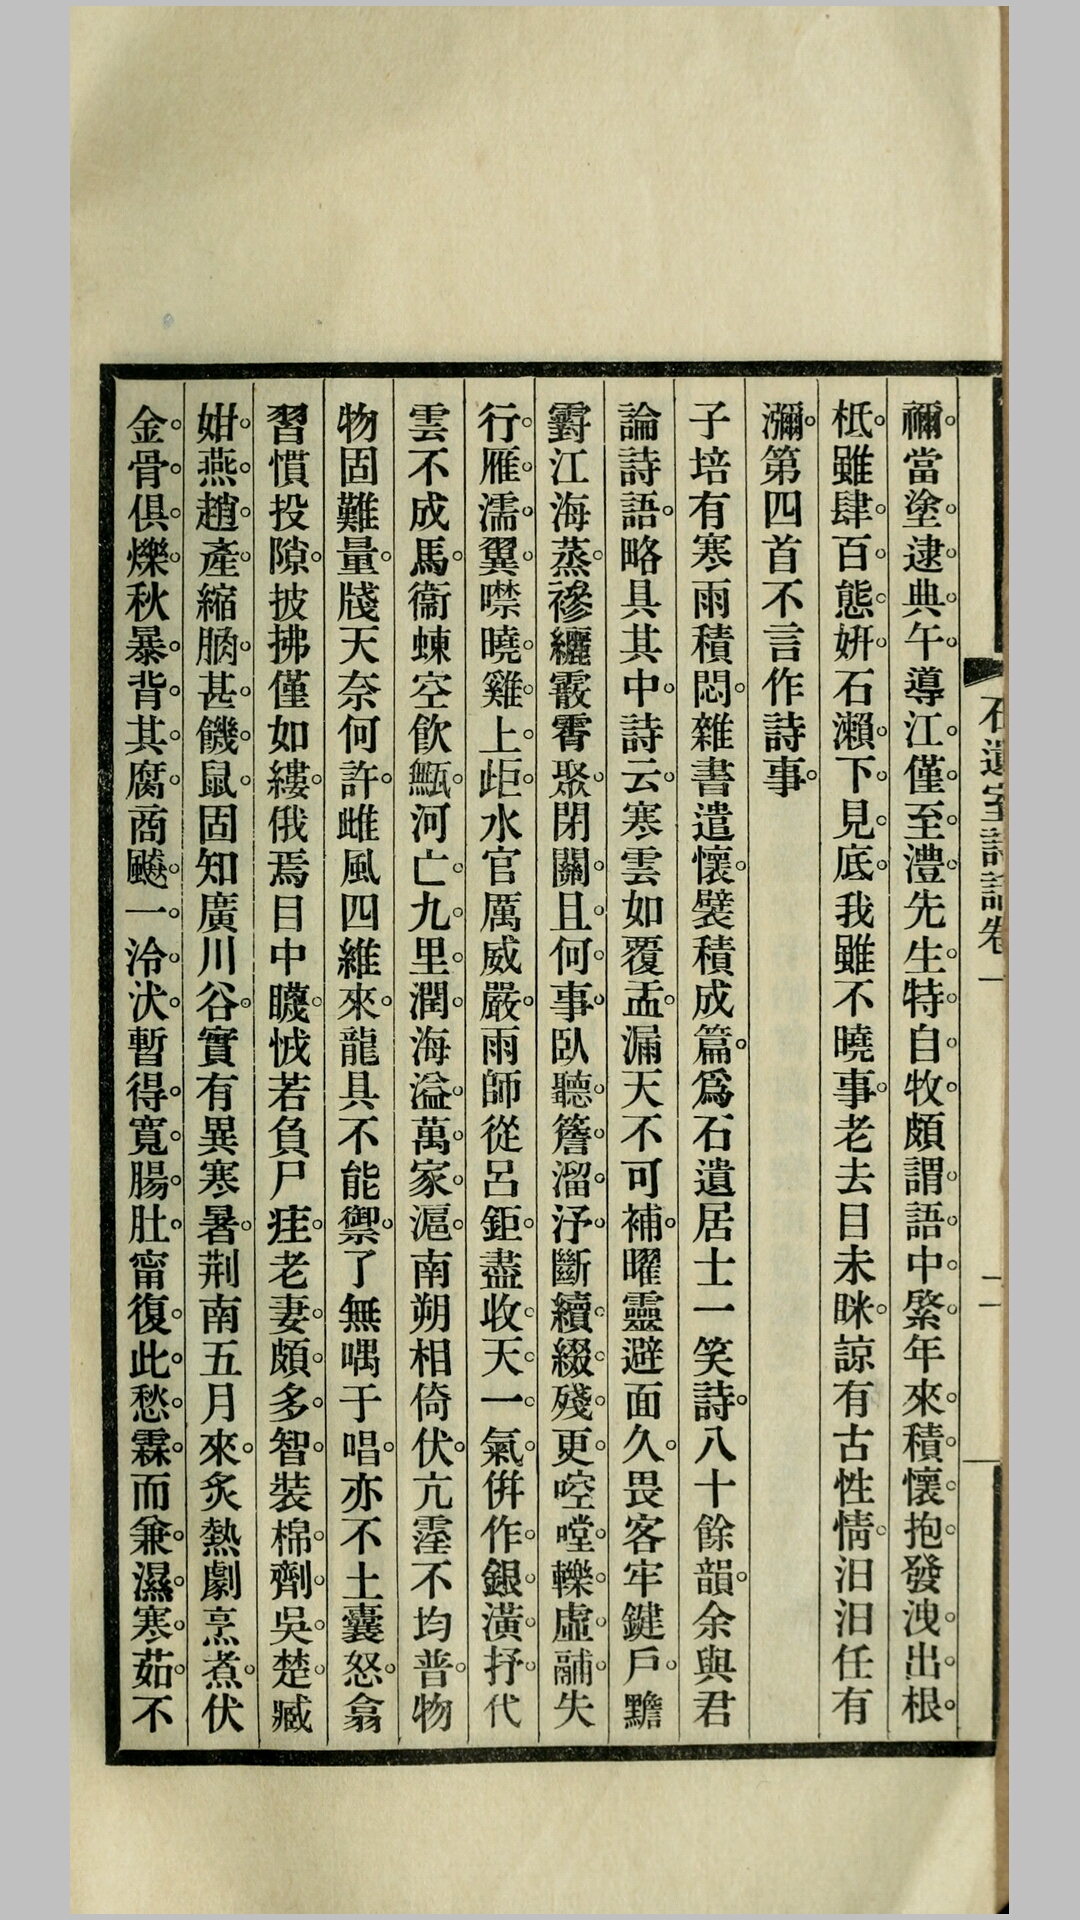 石遺室詩話卷一
二
禰。當塗。逮典。午。導江。僅至。澧。先生。特。自。牧。頗謂。語。中。縏。年來。積。懷。抱。發洩。出。根。
柢。雖肆。百。態。妍。石瀨。下。見。底。我雖不曉事。老去目未眯。諒有古性情。汨汨任有
瀰。第四首不言作詩事。
子培有寒雨積悶。雜書遣懷。襞積成篇。爲石遺居士一笑詩。八十餘韻。余與君
論詩語。略具其中。詩云。寒雲如覆盂。漏天不可補。曜靈避面久。畏客牢鍵戶。黯
霨江海蒸。穇纚霰霄聚。閉關。且。何。事。臥聽。簷。溜。汿。斷續。綴。殘。更。啌。嘡。轢。虛。䩉。失
行。雁。濡。翼。噤曉。雞。上。歫。水官厲威嚴。雨師從呂鉅。盡收。天。一。氣。倂作。銀。潢。抒。代
雲不成馬。衞蝀空飲䰛。河亡。九。里。潤。海溢。萬。家。滬。南朔相倚伏。亢霪不均普。物
物固難量。牋天奈何許。雌風四維來。龍具不能禦。了無喁于唱。亦不土囊怒。翕
習慣投隙。披拂僅如縷。俄焉目中矆。怴若負尸疰。老妻。頗。多。智。裝棉。劑。吳。楚。臧
姏。燕。趙。產。縮朒。甚。饑。鼠。固知廣川谷。實有異寒暑。荆南五月來。炙熱劇烹煮。伏
金。骨。俱。爍。秋暴。背。其。腐。商飇。一。泠。汱。暫得。寬。腸。肚。甯復。此。愁。霖。而兼。濕。寒。茹。不